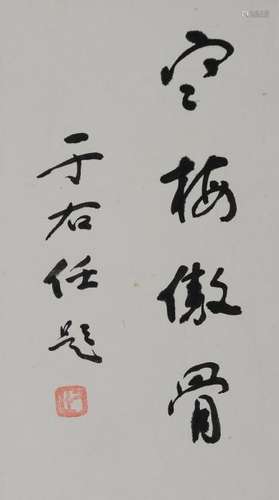 寒梅傲骨
于右任题